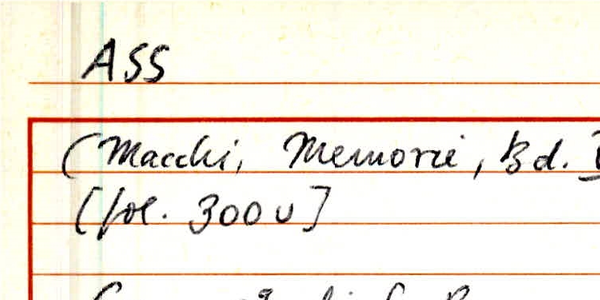 ASS
(Macchi, Memorie, Bd.
[fol. 300v]